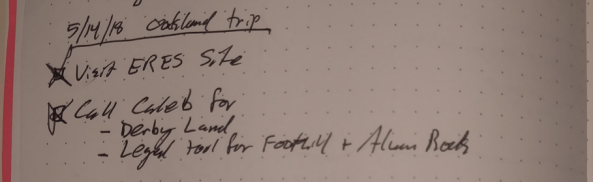 5/14/18 Oakland trip
Visit ERES Site
Call Caleb for
- Derby Land
- Legal tool for Foothill + Alum Rock